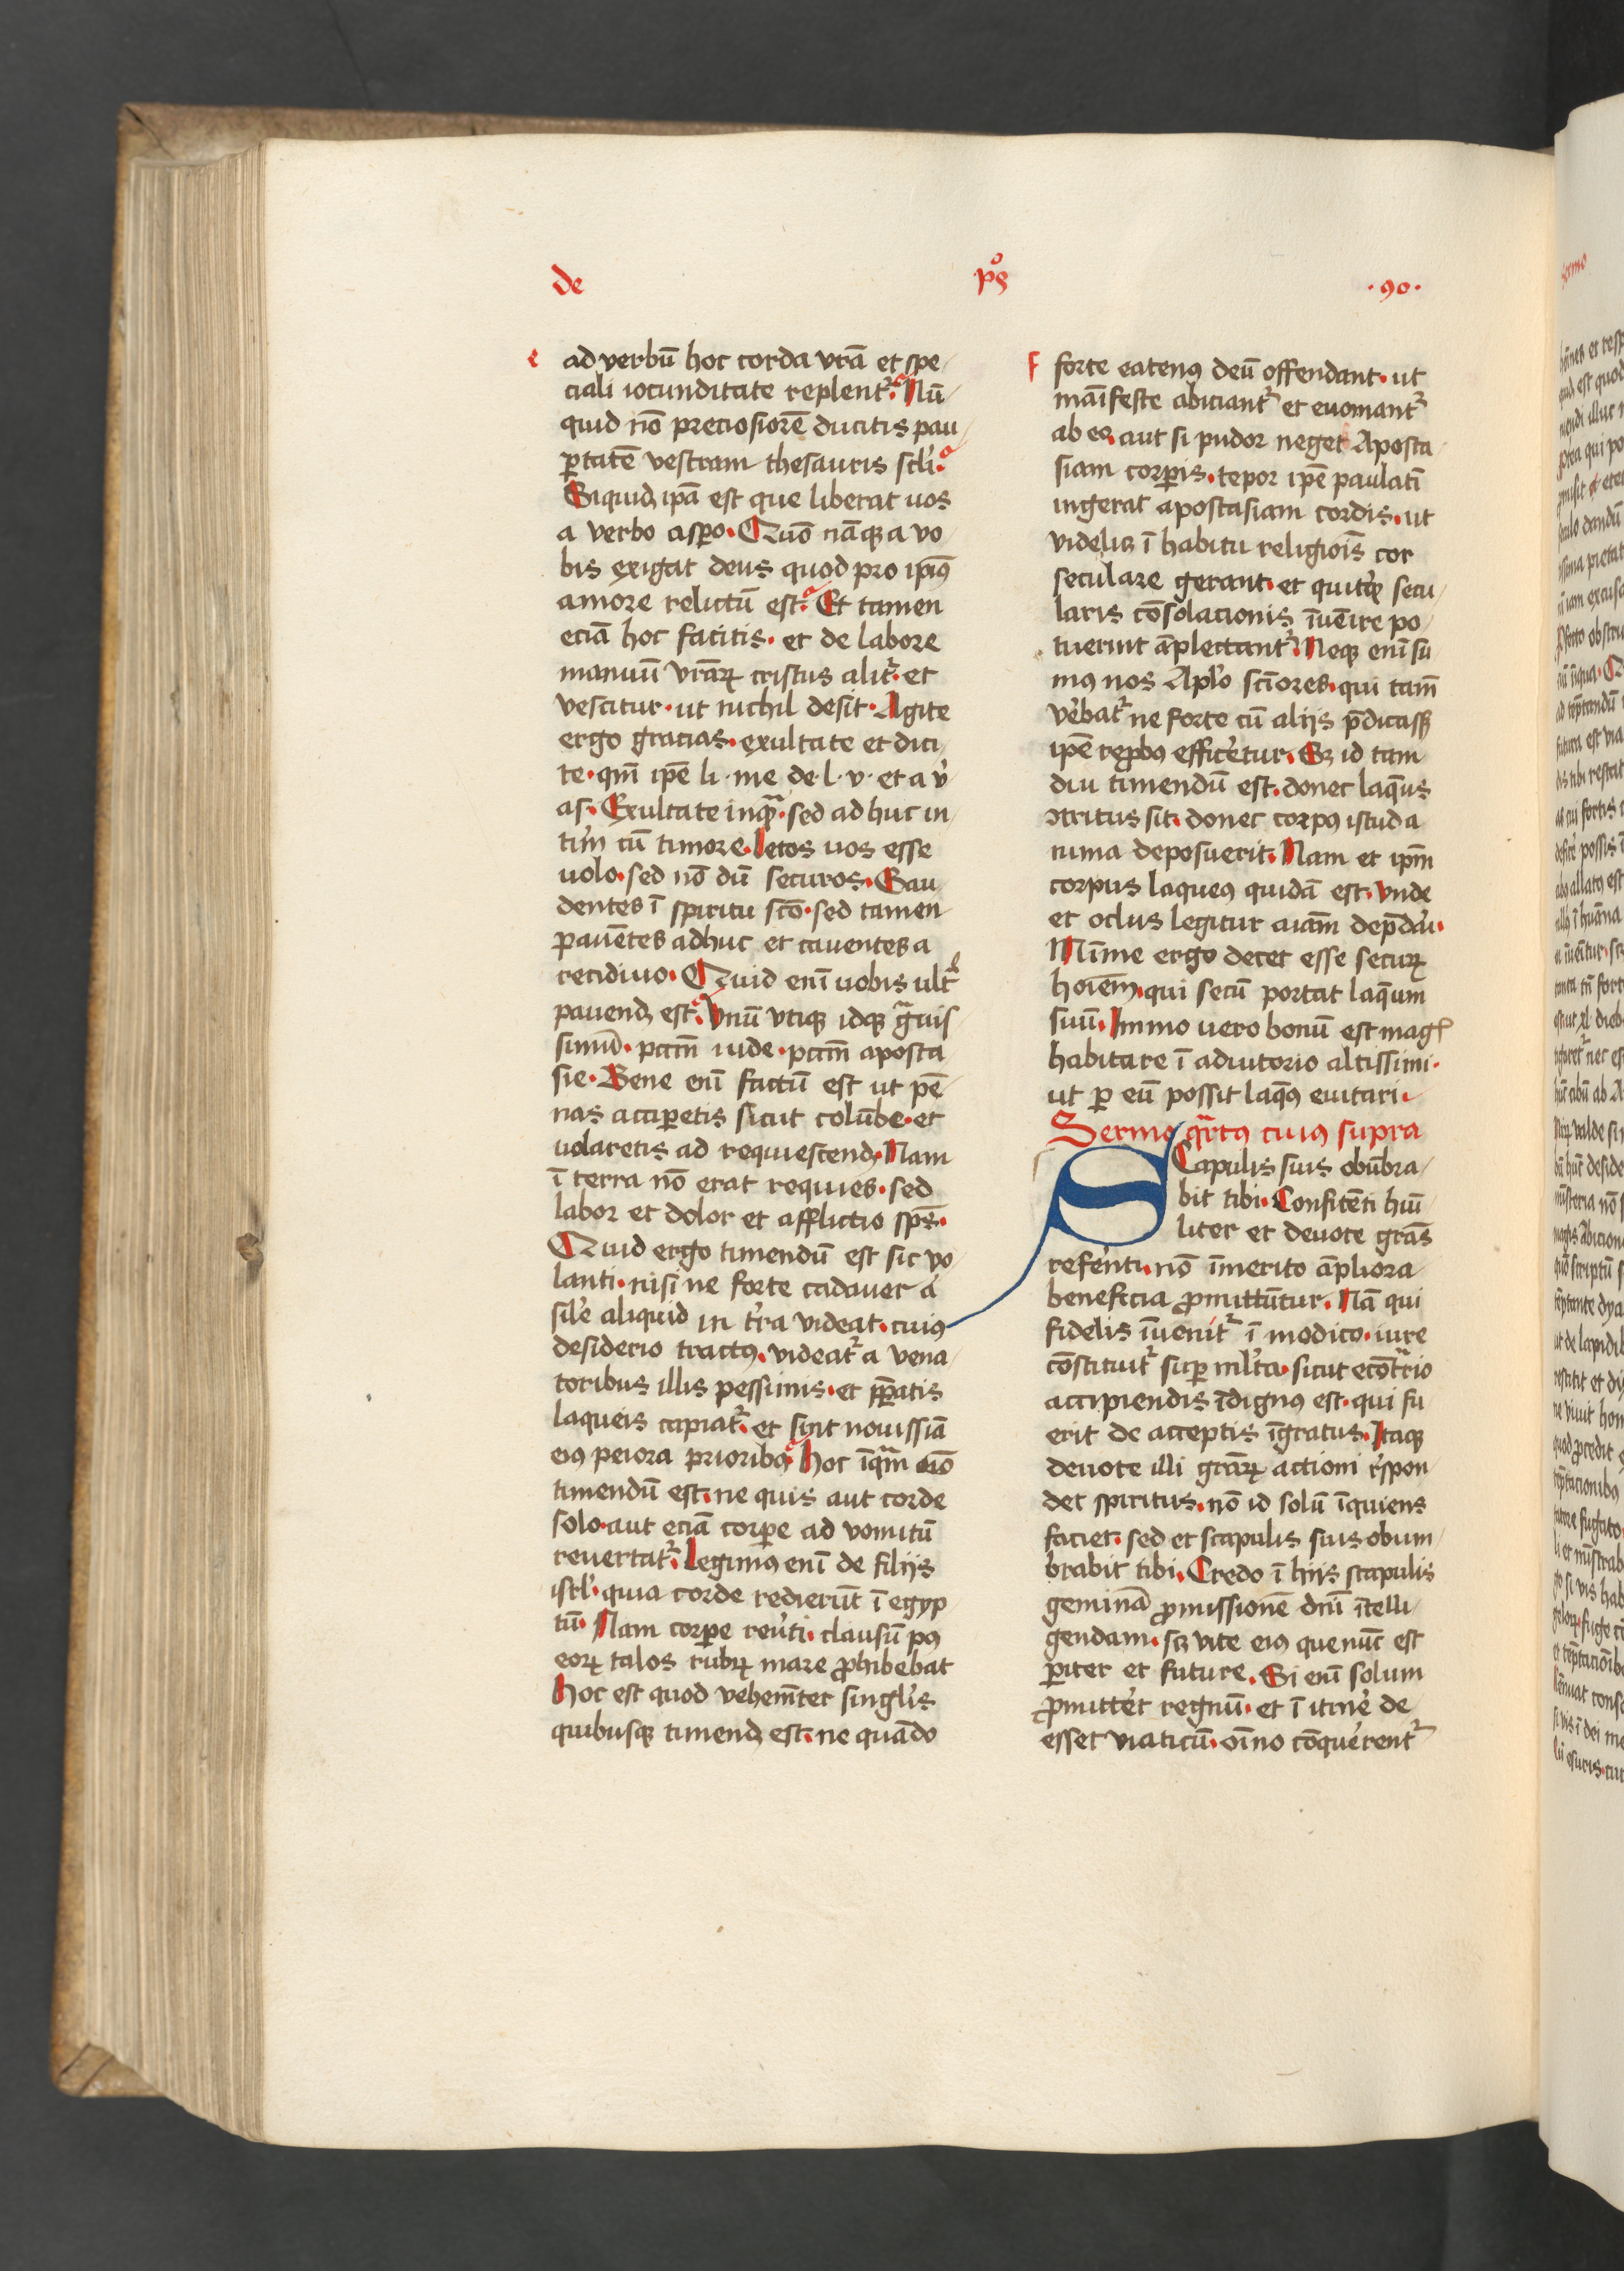 de pꝰs · 90 ·
e
ad verbū hoc corda vrā et spe
ciali iocunditate replent᷑. Nū
quid nō preciosiorē ducitis pau
ꝑtatē vestram thesauris scl̄i.
Siquidꝫ ip̄a est que liberat uos
a verbo aspo. Quō nāqꝫ a vo
bis exigat deus quod pro ip̄iꝰ
amore relictū est. Et tamen
eciā hoc facitis. et de labore
manuū vrāꝝ cristus alit᷑. et
vescitur. ut nichil desit. Agite
ergo gracias. exultate et dici
te. qm̄ ip̄e li. me de. l. v. et a v̾
as. Exultate inqᷓ. sed adhuc in
tim̄ cū timore. letos uos esse
uolo. sed nō dū securos. Gau
dentes ī spiritu scō. sed tamen
pauētes adhuc et cauentes a
recidiuo. Quid enī uobis ult᷑
pauendꝫ est. Vnū vtiqꝫ idqꝫ gᷓuis
simū. pctm̄ iude. pctm̄ aposta
sie. Bene enī factū est ut pē
nas acciꝑetis sicut colūbe. et
uolaretis ad requiescendꝫ. Nam
ī terra nō erat requies. sed
labor et dolor et afflictio sp̄s.
Quid ergo timendū est sic vo
lanti. nisi ne forte cadauer a
sil̾e aliquid in t̾ra videat. cuiꝰ
desiderio tractꝰ. videat᷑ a vena
toribus illis pessimis. et ꝑꝑatis
laqueis capiat᷑. et sint nouissīa
eiꝰ peiora prioribꝰ. Hoc īqᷓm oīo
timendū est. ne quis aut corde
solo. aut eciā corꝑe ad vomitū
reuertat᷑. Legimꝰ enī de filijs
isrl̾. quia corde redierūt ī egyp
tū. Nam corꝑe reu̾ti. clausū pꝰ
eoꝝ talos rubꝝ mare ꝓhibebat
Hoc est quod vehemēter singl̾is
quibusqꝫ timendꝫ est. ne quādo
f
forte eatenꝰ deū offendant. ut
māifeste abiciant᷑ et euomant᷑
ab eo. aut si pudor neget Aposta
siam corꝑis. tepor ip̄e paulatī
ingerat apostasiam cordis. ut
videlicꝫ ī habitu religiois̄ cor
seculare gerant. et quitqͥd secu
laris cōsolacionis īuēire po
tuerint āplectant᷑. Neqꝫ enī su
mꝰ nos Aplo̾ scīores. qui tam̄
v̾ebat᷑ ne forte cū alijs p̄dicasꝫ
ip̄e reꝓbꝰ effice̾tur. Sꝫ id tam
diu timendū est. donec laq̄us
ꝯtritus sit. donec corpꝰ istud a
nima deposuerit. Nam et ip̄m
corpus laqueꝰ quidā est. vnde
et oclus legitur aiam̄ dep̄dari.
Mīime ergo decet esse secuꝝ
hoiem̄. qui secū portat laq̄um
suū. Immo uero bonū est magꝭ
habitare ī adiutorio altissimi.
ut ꝑ eū possit laqꝰ euitari.
Sermo qᷓrtꝰ cuiꝰ supra
SCapulis suis obūbra
bit tibi. Confitēti hūi
liter et deuote grās
refe̾nti. nō īmerito āpliora
beneficia ꝓmittūtur. Nā qui
fidelis īuenit᷑ ī modico. iure
cōstituit᷑ suꝑ ml̾ta. sicut ecōtᷓrio
accipiendis īdignꝰ est. qui fu
erit de acceptis īgratus. Itaqꝫ
deuote illi grāꝝ actioni r̾spon
det spiritus. nō id solū īquiens
faciet. sed et scapulis suis obum
brabit tibi. Credo ī hijs scapulis
geminā ꝓmissionē dn̄i ītelli
gendam. scꝫ vite eiꝰ que nūc est
ꝑiter et future. Si enī solum
ꝓmitte̾t regnū. et ī itine̾ de
esset viaticū. oīno cōque̾rent᷑